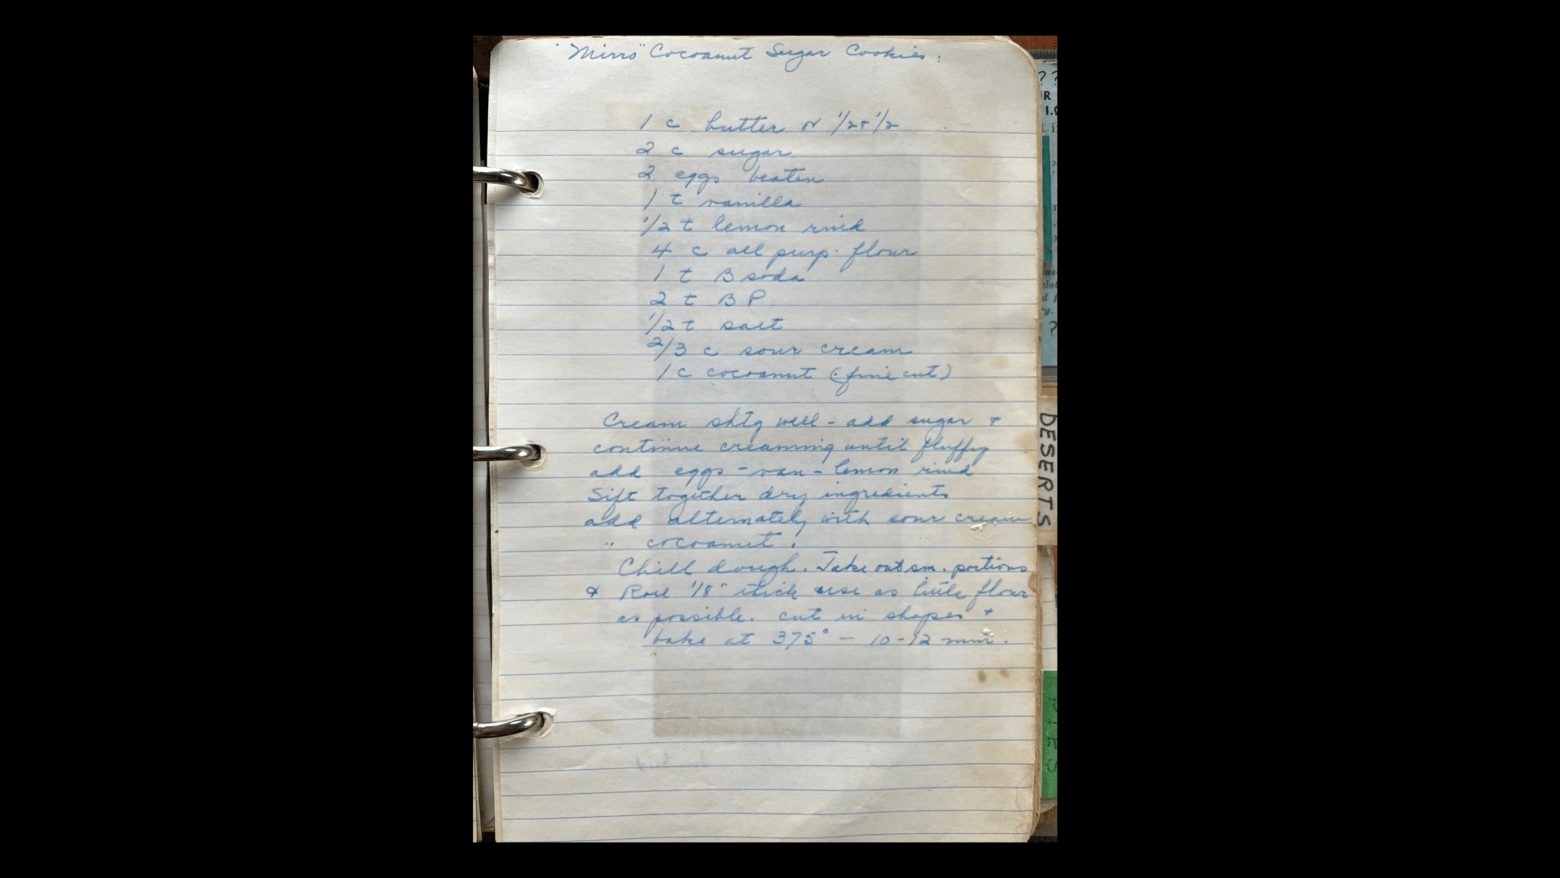 "Mirro" Cocoanut Sugar Cookies.
1 c butter or 1/2 + 1/2
2 c sugar
2 eggs beaten
1 t vanilla
1/2 t lemon rind
4 c all purp. flour
1 t B soda
2 t B P
1/2 t salt
2/3 c sour cream
1 c cocoanut (fine cut)
Cream shtg well - add sugar +
continue creaming until fluffy
add eggs - van - lemon rind
Sift together dry ingredients
add alternately with sour cream
" cocoanut.
Chill dough. Take out sm. portions
& Roll 1/8" thick use as little flour
as possible. cut in shapes +
bake at 375° - 10-12 min.
DESERTS
? ?
R
1.
?